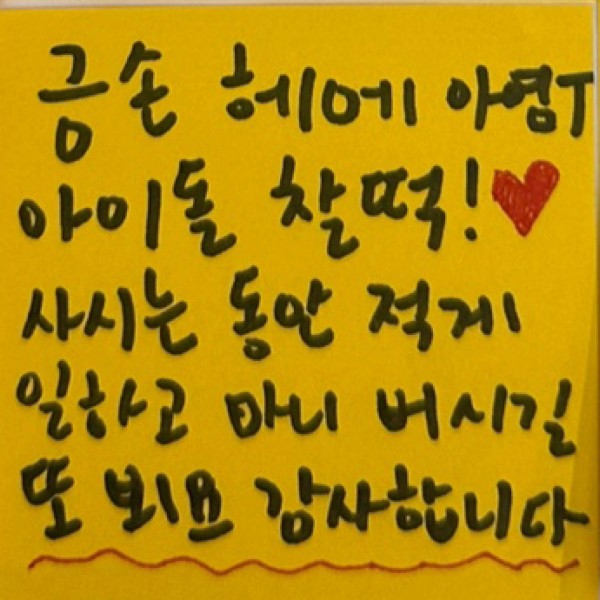 금손 헤메 아염T
아이돌 찰떡!
사시는 동안 적게
일하고 마니 버시길
또 뵈요 감사합니다